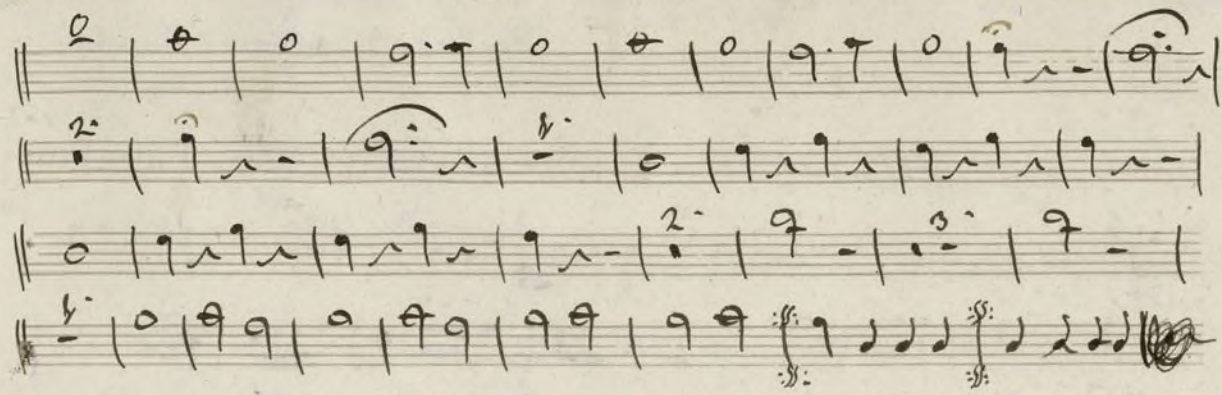 2.
1.
2.
3.
1.